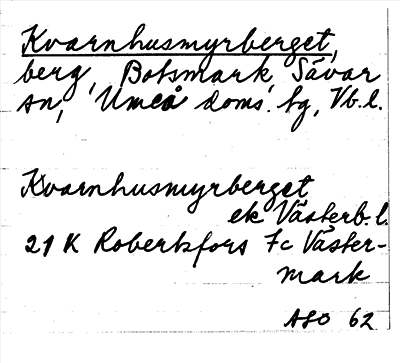 Kvarnhusmyrberget,
berg, Botsmark, Sävar
sn, Umeå doms. tg, Vb. l.
Kvarnhusmyrberget
ek Västerb. l.
21 K Robertsfors 7c Väster-
mark
ASO 62